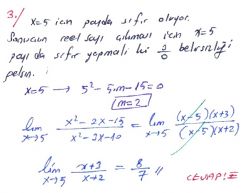 3.) x=5 için payda sıfır oluyor.
Sonucun reel sayı çıkması için x=5
payı da sıfır yapmalı ki 0/0 belirsizliği
gelsin.
x=5 → 5² - 5.m - 15 = 0
m=2
lim x→5 (x² - 2x - 15)/(x² - 3x - 10) = lim x→5 (x-5)(x+3)/(x-5)(x+2)
lim x→5 (x+3)/(x+2) = 8/7 //
CEVAP: E